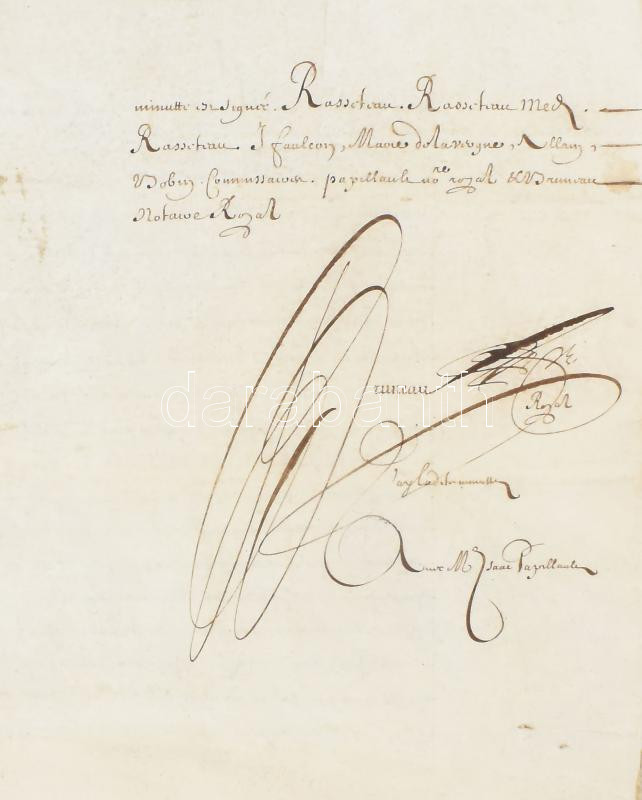 minutte est signée. Rasseteau. Rasseteau Med.
Rasseteau J faulcon, Marie delavergne, Allain,
Bobin. Commissaires. papillault nore royal & Bruneau
Notaire Royal
Bruneau
Royal
J'ay ladite minutte
Avec Me Isaac Papillault
darabanth